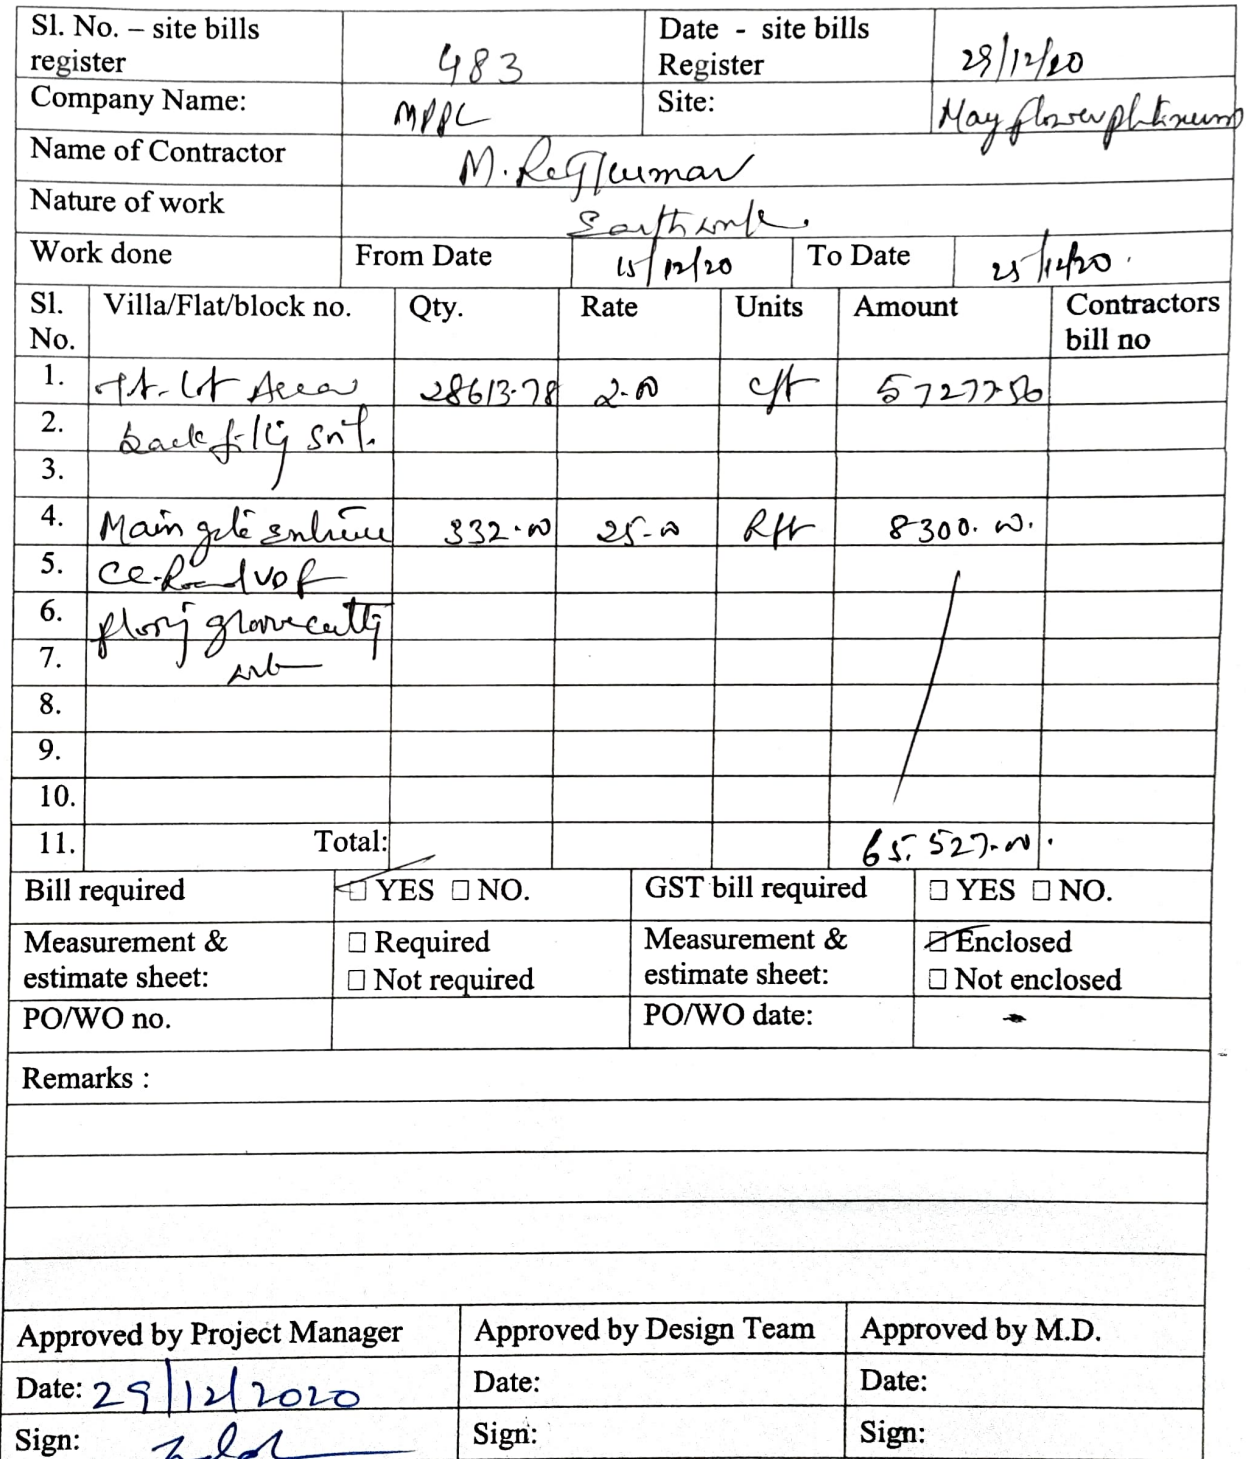 Sl. No. – site bills register 483 Date - site bills Register 29/12/20
Company Name: MPPL Site: Mayflower platinum
Name of Contractor M. Rajkumar
Nature of work Earthwork.
Work done From Date 15/12/20 To Date 25/12/20.
Sl. No. Villa/Flat/block no. Qty. Rate Units Amount Contractors bill no
1. Area 28613.78 2.00 cft 57277-56
2. back fillig
3.
4. Main gate entrance 332.00 25-00 Rft 8300.00.
5. CC-Road VDF
6. groove cuttig
7.
8.
9.
10.
11. Total: 65,527.00.
Bill required ☐ YES ☐ NO. GST bill required ☐ YES ☐ NO.
Measurement & estimate sheet: ☐ Required ☐ Not required Measurement & estimate sheet: ☑ Enclosed ☐ Not enclosed
PO/WO no. PO/WO date:
Remarks :
Approved by Project Manager Approved by Design Team Approved by M.D.
Date: 29/12/2020 Date: Date:
Sign: Sign: Sign: